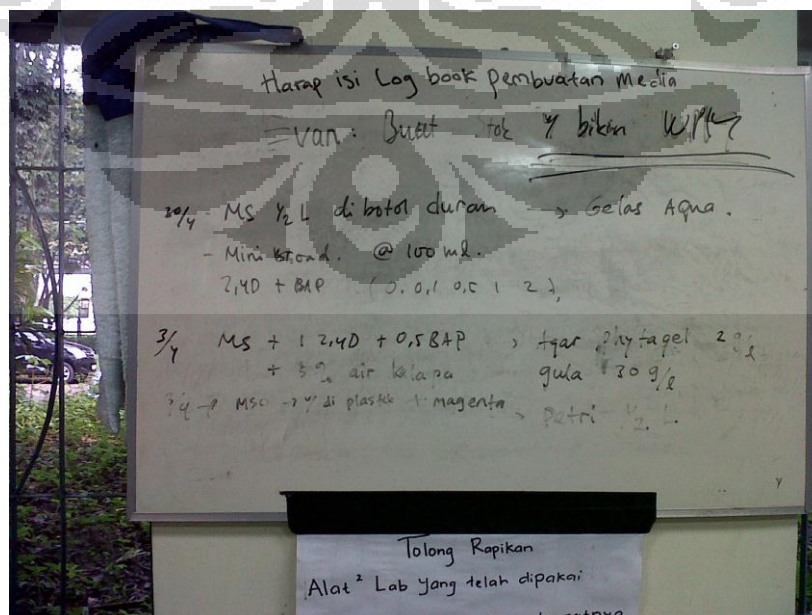 Harap isi Log book pembuatan Media
Evan: Buat tok y bikin WPM
30/4 MS 1/2 L di botol duran → Gelas Aqua.
- Mini @ 100 ml.
2,4D + BAP (0. 0,1 0,5 1 2)
3/4 MS + 1 2,4D + 0,5 BAP → Agar phytagel 2 g/l
+ 5% air kelapa gula 30 g/l
MSO → y di plastik + magenta, petri 1/2 L.
Tolong Rapikan
Alat² Lab yang telah dipakai